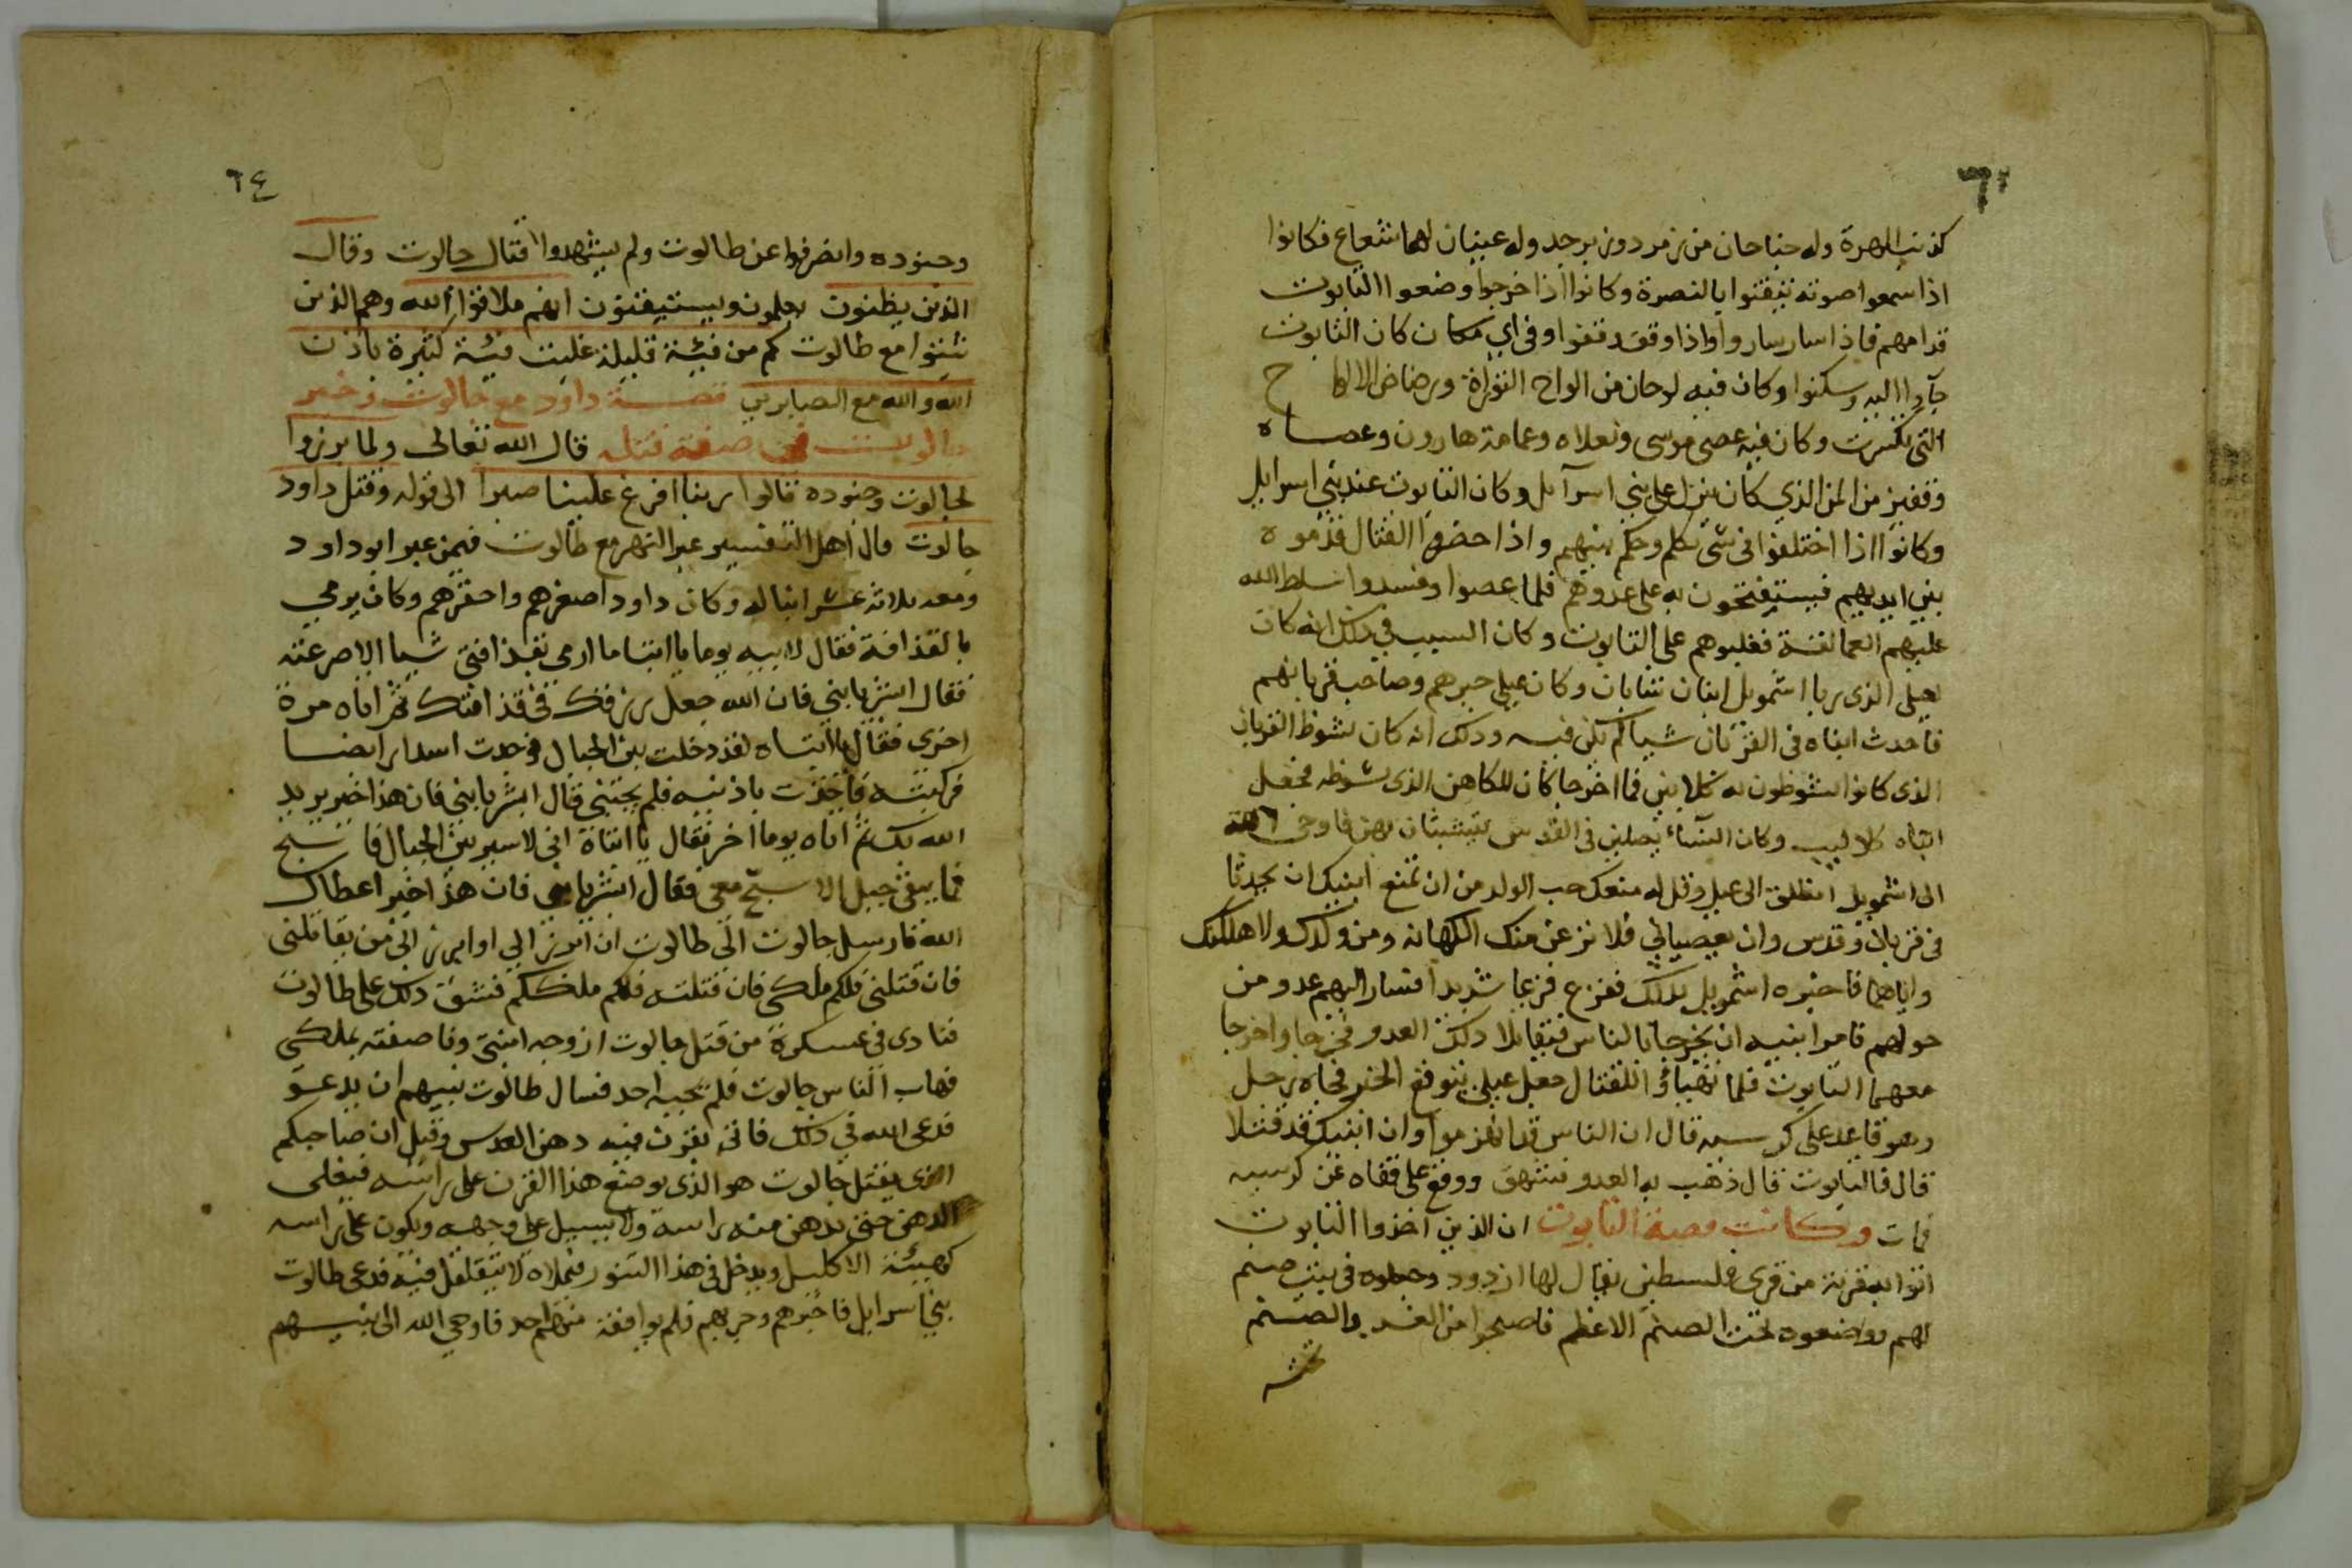 كذنب الهرة وله جناحان من زمرد وزبرجد وله عينان لهما شعاع فكانوا
اذا سمعوا صوته تيقنوا بالنصرة وكانوا اذا خرجوا وضعوا التابوت
قدامهم فاذا سار ساروا واذا وقف وقفوا وفى اي مكان كان التابوت
جآوا اليه وسكنوا وكان فيه لوحان من الواح التوراة ورضاض الالواح
التى تكسرت وكان فيه عصى موسى ونعلاه وعمامة هارون وعصاه
وقفيز من المن الذي كان ينزل على بني اسرآيل وكان التابوت عند بني اسرايل
وكانوا اذا اختلفوا فى شى تكلم وحكم بينهم واذا حضروا القتال قدموه
بين ايديهم فيستفتحون به على عدوهم فلما عصوا وفسدوا سلط الله
عليهم العمالقة فغلبوهم على التابوت وكان السبب في ذلك انه كان
لعيلى الذى ربا اشمويل ابنان شابان وكان عيلى حبرهم وصاحب قربانهم
فاحدث ابناه فى القربان شيا لم يكن فيه وذلك انه كان يشوط القربان
الذى كانوا يشوطون به كلابين فما اخرجا كان للكاهن الذى يشوطه فجعل
ابناه كلاليب وكان النساء يصلين فى القدس يتشبثان بهن فاوحى الله
الى اشمويل انطلق الى عيلى وقل له منعك حب الولد من ان تمنع ابنيك ان يحدثا
فى قربان وقدس وان يعصيانى فلانزعن منك الكهانة ومن ولدك ولاهلكنك
واياهما فاخبره اشمويل بذلك ففزع فزعا شديدا فسار اليهم عدو من
حولهم فامر ابنيه ان يخرجا بالناس فيقاتلا ذلك العدو فخرجا واخرجا
معهما التابوت فلما تهياؤا للقتال جعل عيلى يتوقع الخبر فجاه رجل
وهو قاعد على كرسيه قال ان الناس قد انهزموا وان ابنيك قد قتلا
قال فالتابوت قال ذهب به العدو فشهق ووقع على قفاه عن كرسيه
فمات وكانت قصة التابوت ان الذين اخذوا التابوت
اتوا به قرية من قرى فلسطين يقال لها ازدود وجعلوه فى بيت صنم
لهم ووضعوه تحت الصنم الاعظم فاصبحوا من الغد والصنم
تحته
٦٤
وجنوده وانصرفوا عن طالوت ولم يشهدوا قتال جالوت وقال
الذين يظنون يعلمون ويستيقنون انهم ملاقوا الله وهم الذين
ثبتوا مع طالوت كم من فيئة قليلة غلبت فيئة كثيرة باذن
الله والله مع الصابرين قصة داود مع جالوت وخبر
جالوت صفة قتله قال الله تعالى ولما برزوا
لجالوت وجنوده قالوا ربنا افرغ علينا صبرا الى قوله وقتل داود
جالوت قال اهل التفسير عبر النهر مع طالوت فيمن عبر ابو داود
ومعه ثلاثة عشر ابنا له وكان داود اصغرهم واحقرهم وكان يرمي
بالقذافة فقال لابيه يوما يا ابتاه ما ارمى بقذافتى شيا الا صرعته
فقال ابشر يا بني فان الله جعل رزقك فى قذافتك ثم اتاه مرة
اخرى فقال يا ابتاه لقد دخلت بين الجبال فوجدت اسدا رابضا
فركبته فاخذت باذنيه فلم يجبنى قال ابشر يا بني فان هذا خير يريد
الله بك ثم اتاه يوما اخر فقال يا ابتاة انى لاسير بين الجبال فاسبح
فما يبقى جبل الا سبح معى فقال ابشر يا بنى فان هذا خير اعطاك
الله فارسل جالوت الى طالوت ان ابرز الي او ابرز الى من يقاتلنى
فان قتلنى فلكم ملكى فان قتلته فلى ملككم فشق ذلك على طالوت
فنادى فى عسكرة من قتل جالوت ازوجه ابنتى وناصفته بملكى
فهاب الناس جالوت فلم يجبه احد فسال طالوت نبيهم ان يدعو
فدعى الله في ذلك فاتى بقرن فيه دهن القدس وقيل ان صاحبكم
الذى يقتل جالوت هو الذى يوضع هذا القرن على راسه فيغلى
الدهن حتى يدهن منه راسه ولا يسيل على وجهه ويكون على راسه
كهيئة الاكليل ويدخل فى هذا التنور فيملاه لا يتقلقل فيه فدعى طالوت
بني اسرايل فاخبرهم وجربهم فلم يوافقه منهم احد فاوحي الله الى نبيهم